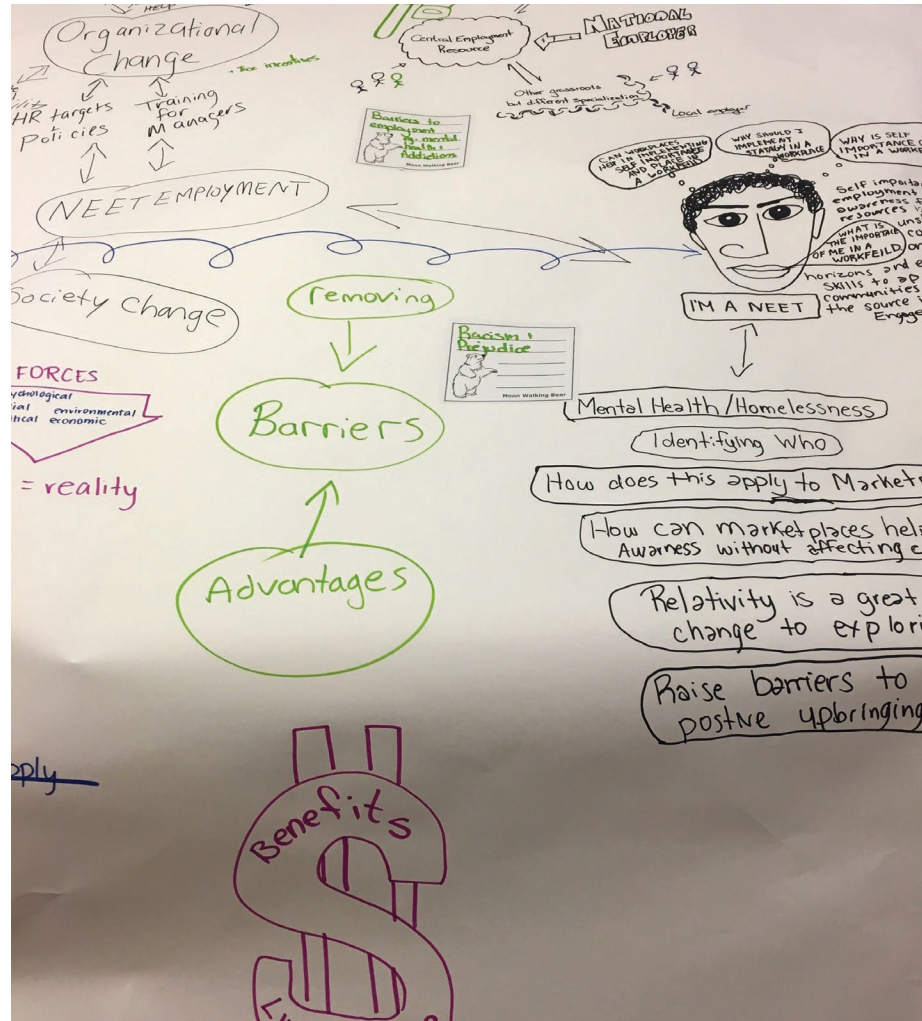 HELP
Organizational
Change
• Tax incentives
HR targets
Policies
Training
for
Managers
NEET EMPLOYMENT
Society Change
FORCES
environmental
economic
= reality
Central Employment
Resource
NATIONAL
EMPLOYER
Other grassroots
but different specialization
Local employer
Barriers to
employment
eg. mental
health +
Addictions
Moon Walking Bear
removing
Barriers
Advantages
Racism +
Prejudice
Moon Walking Bear
CAN WORKPLACES
HELP IN IMPLEMENTING
SELF IMPORTANCE
AND PLACE IN
A WORKFEILD
WHY SHOULD I
IMPLEMENT
MYSELF IN A
WORKPLACE
WHY IS SELF
IMPORTANCE
IN A WORKFE
Self importa
employment
awareness
resources
WHAT IS
THE IMPORTACE
OF ME IN A
WORKFEILD
horizons and e
skills to ap
communities
the source
Engage
I'M A NEET
Mental Health/Homelessness
Identifying Who
How does this apply to Market
How can marketplaces hel
Awarness without affecting c
Relativity is a great
change to explori
Raise barriers to
postive upbringing
pply
Benefits